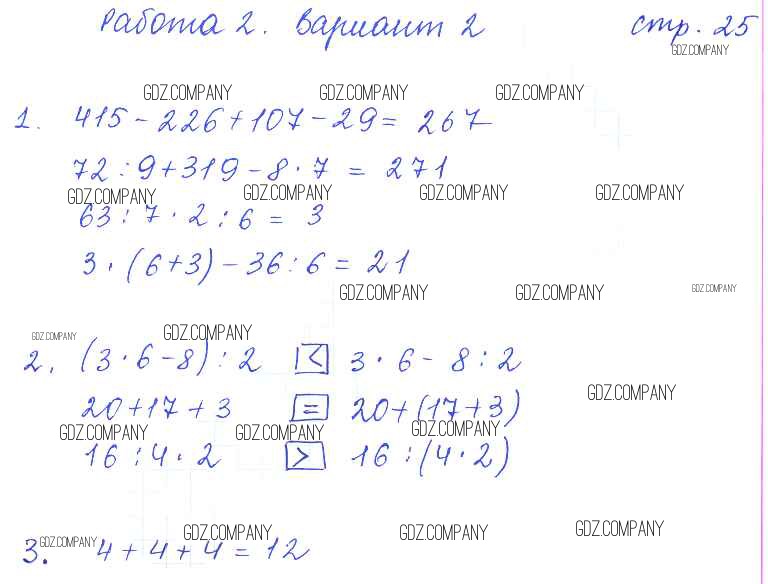 Работа 2. Вариант 2 стр. 25
GDZ.COMPANY
GDZ.COMPANY GDZ.COMPANY GDZ.COMPANY
1. 415 - 226 + 107 - 29 = 267
72 : 9 + 319 - 8 · 7 = 271
GDZ.COMPANY GDZ.COMPANY GDZ.COMPANY GDZ.COMPANY
63 : 7 · 2 : 6 = 3
3 · (6 + 3) - 36 : 6 = 21
GDZ.COMPANY GDZ.COMPANY GDZ.COMPANY
GDZ.COMPANY GDZ.COMPANY
2. (3 · 6 - 8) : 2 < 3 · 6 - 8 : 2
GDZ.COMPANY
20 + 17 + 3 = 20 + (17 + 3)
GDZ.COMPANY GDZ.COMPANY GDZ.COMPANY
16 : 4 · 2 > 16 : (4 · 2)
GDZ.COMPANY GDZ.COMPANY GDZ.COMPANY GDZ.COMPANY
3. 4 + 4 + 4 = 12